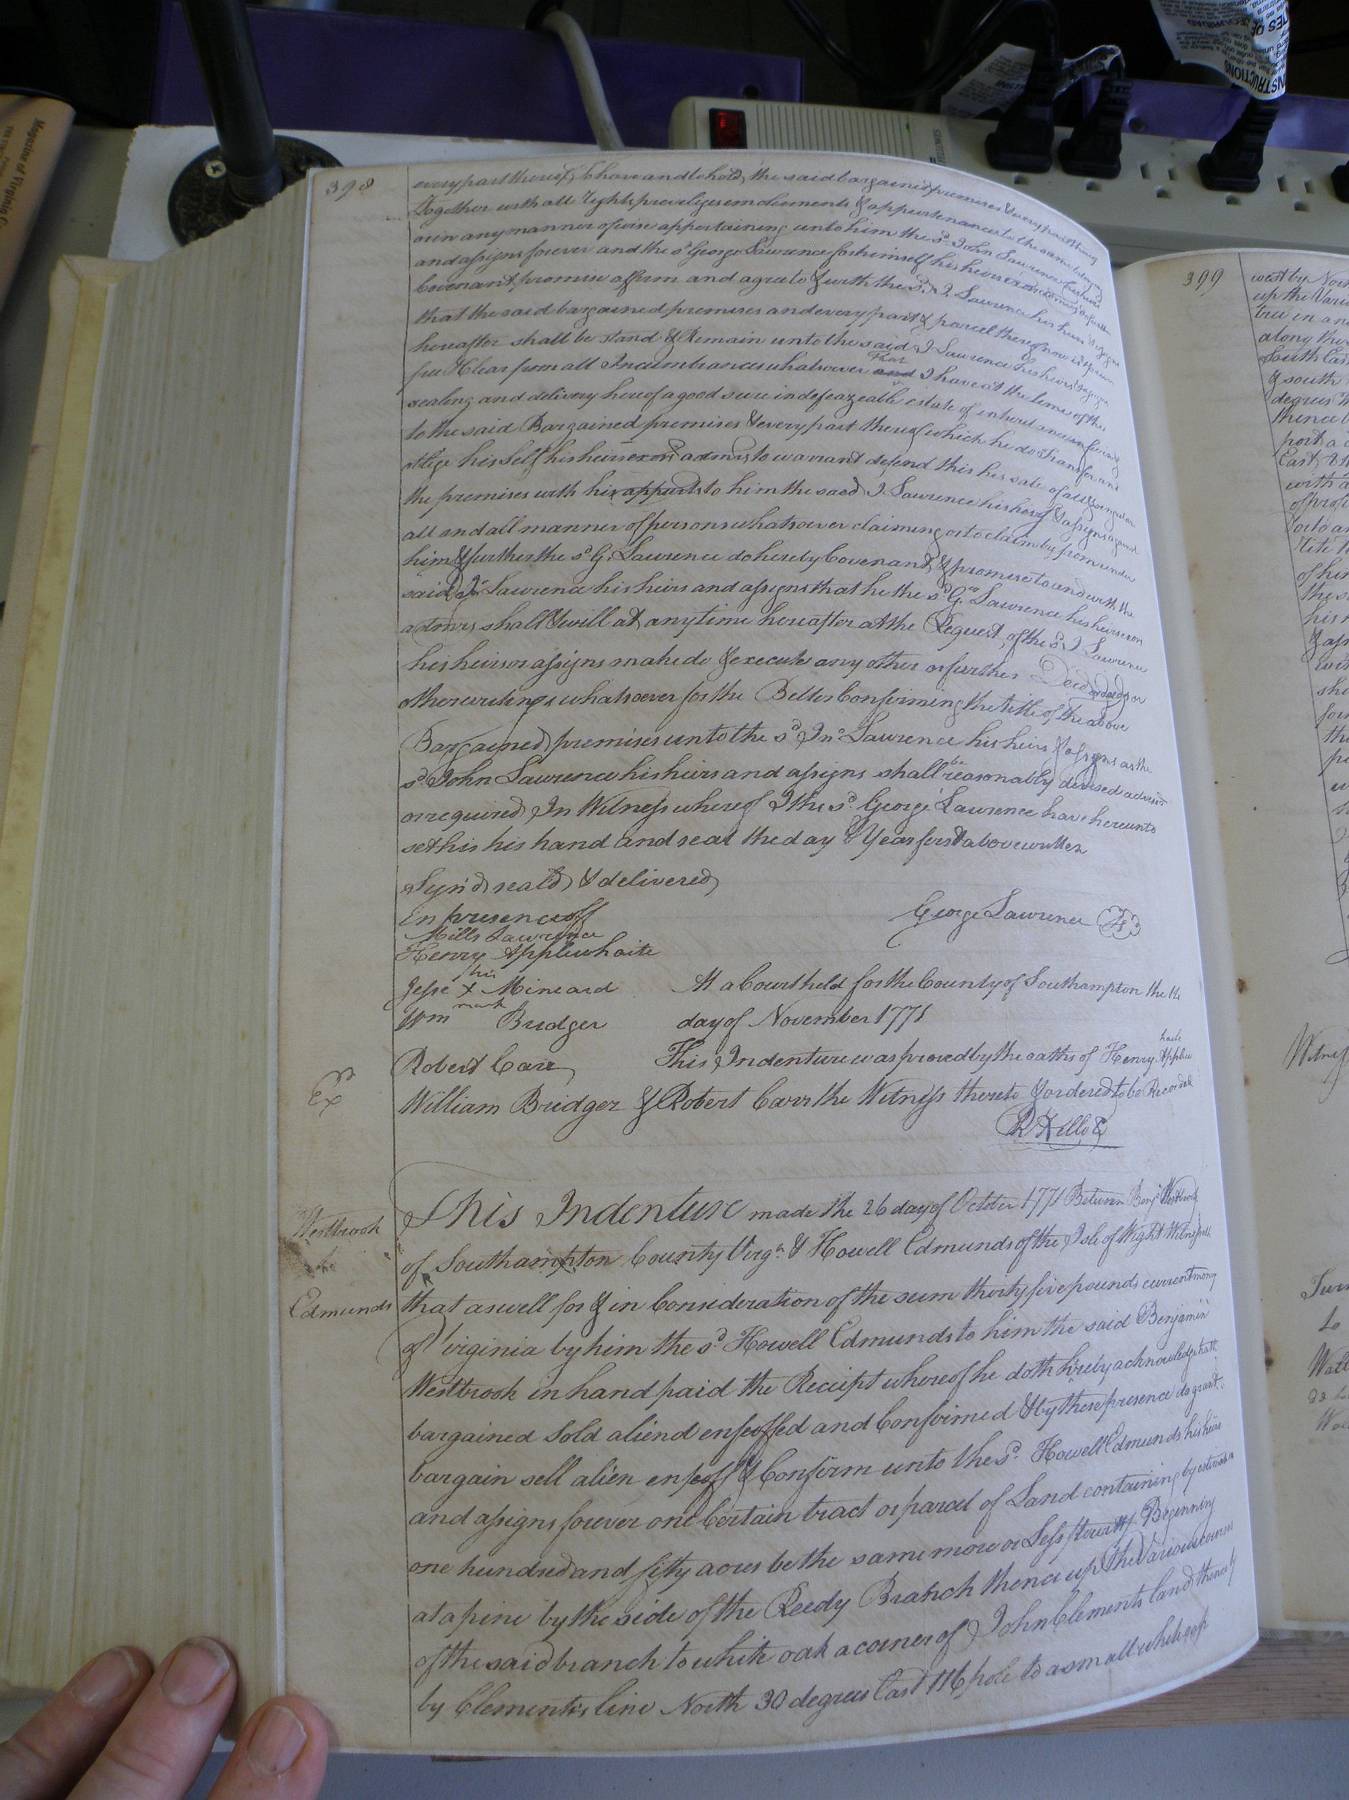 398
every part thereof, to have and to hold, the said bargained premises & every part thereof
Together with all rights priveliges emoluments & appurtenances to the same belonging
or in any manner of wise appertaining unto him the sd. John Lawrence his heirs
and assigns forever and the sd George Lawrence for himself his heirs
Covenant, promise affirm and agree to & with the sd. J. Lawrence his heirs & assigns
that the said bargained premises and every part & parcel thereof now is & forever
hereafter shall be stand & Remain unto the said J Lawrence his heirs & assigns
free & Clear from all Incumbrances whatsoever and That I have at the time of the
sealing and delivery hereof a good sure indefeazeable estate of inheritance in fee in and
to the said Bargained premises & every part thereof which he do transfer and
oblige his Self, his heirs exors admrs to warrant defend this his sale of all & singular
the premises with his appurts to him the said J. Lawrence his heirs & assigns against
all and all manner of persons whatsoever claiming or to claim by from under
him & further the sd G. Lawrence do hereby Covenant & promise to and with the
said Jn Lawrence his heirs and assigns that he the sd Geo Lawrence his heirs exors
admrs shall & will at any time hereafter at the Request, of the sd J Lawrence
his heirs or assigns make do & execute any other or further Deed deeds or
other writings whatsoever for the Better Confirming the title of the above
Bargained, premises unto the sd Jno Lawrence his heirs & assigns as the
sd John Lawrence his heirs and assigns shall be reasonably devised advised
or required In Witness whereof I the sd. George Lawrence have hereunto
set his his hand and seal the day & Year first above written
Syn'd seal'd & delivered
in presence off
George Lawrence LS
Mills Lawrence
Henry Applewhaite
his
Jesse X Mineard At a Court held for the County of Southampton the 14
mark
Wm Bridger day of November 1771
Robert Carr This Indenture was proved by the oaths of Henry Applewhaite
Ex
William Bridger & Robert Carr the Witness thereto & ordered to be Recorded
R Kello C
This Indenture made the 26 day of October 1771 Between Benj Westbrook
Westbrook
to
Edmunds
of Southampton County Virga & Howell Edmunds of the Isle of Wight Witnesseth
that aswell for & in Consideration of the sum thirty five pounds current mony
of Virginia by him the sd. Howell Edmunds to him the said Benjamin
Westbrook in hand paid the Receipt whereof he doth hereby acknowledge hath
bargained Sold aliend enfeoffed and Confirmed & by these presence do grant
bargain sell alien enfeoff & Confirm unto the sd. Howell Edmunds his heirs
and assigns forever one Certain tract or parcel of Land containing by estimation
one hundred and fifty acres be the same more or Less, to witt Beginning
at a pine by the side of the Reedy Branch thence up the Various courses
of the said branch to white oak a corner of John Clements land thence
by Clements, line North 30 degrees East 116 pole to a small white oak
399
west by Nor
up the Vari
tree in an
along the
South Eas
& south
degrees
thence
port a
East,
with a
of prof
title
of his
the s
his
& ass
with
sha
for
the
Witness
to
INSTRUCTIONS
Magazine of Virginia